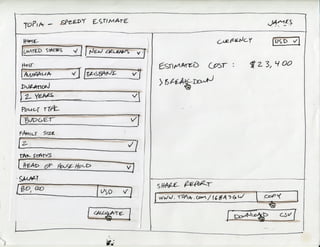 TOPIA - SPEEDY ESTIMATE
JAMES
HOME
UNITED STATES
NEW ORLEANS
HOST
AUSTRALIA
BRISBANE
DURATION
2 YEARS
POLICY TYPE
BUDGET
FAMILY SIZE
2
TAX STATUS
HEAD OF HOUSEHOLD
SALARY
80,00
USD
CALCULATE
CURRENCY
USD
ESTIMATED COST: $23,400
> BREAKDOWN
SHARE REPORT
COPY
DOWNLOAD CSV